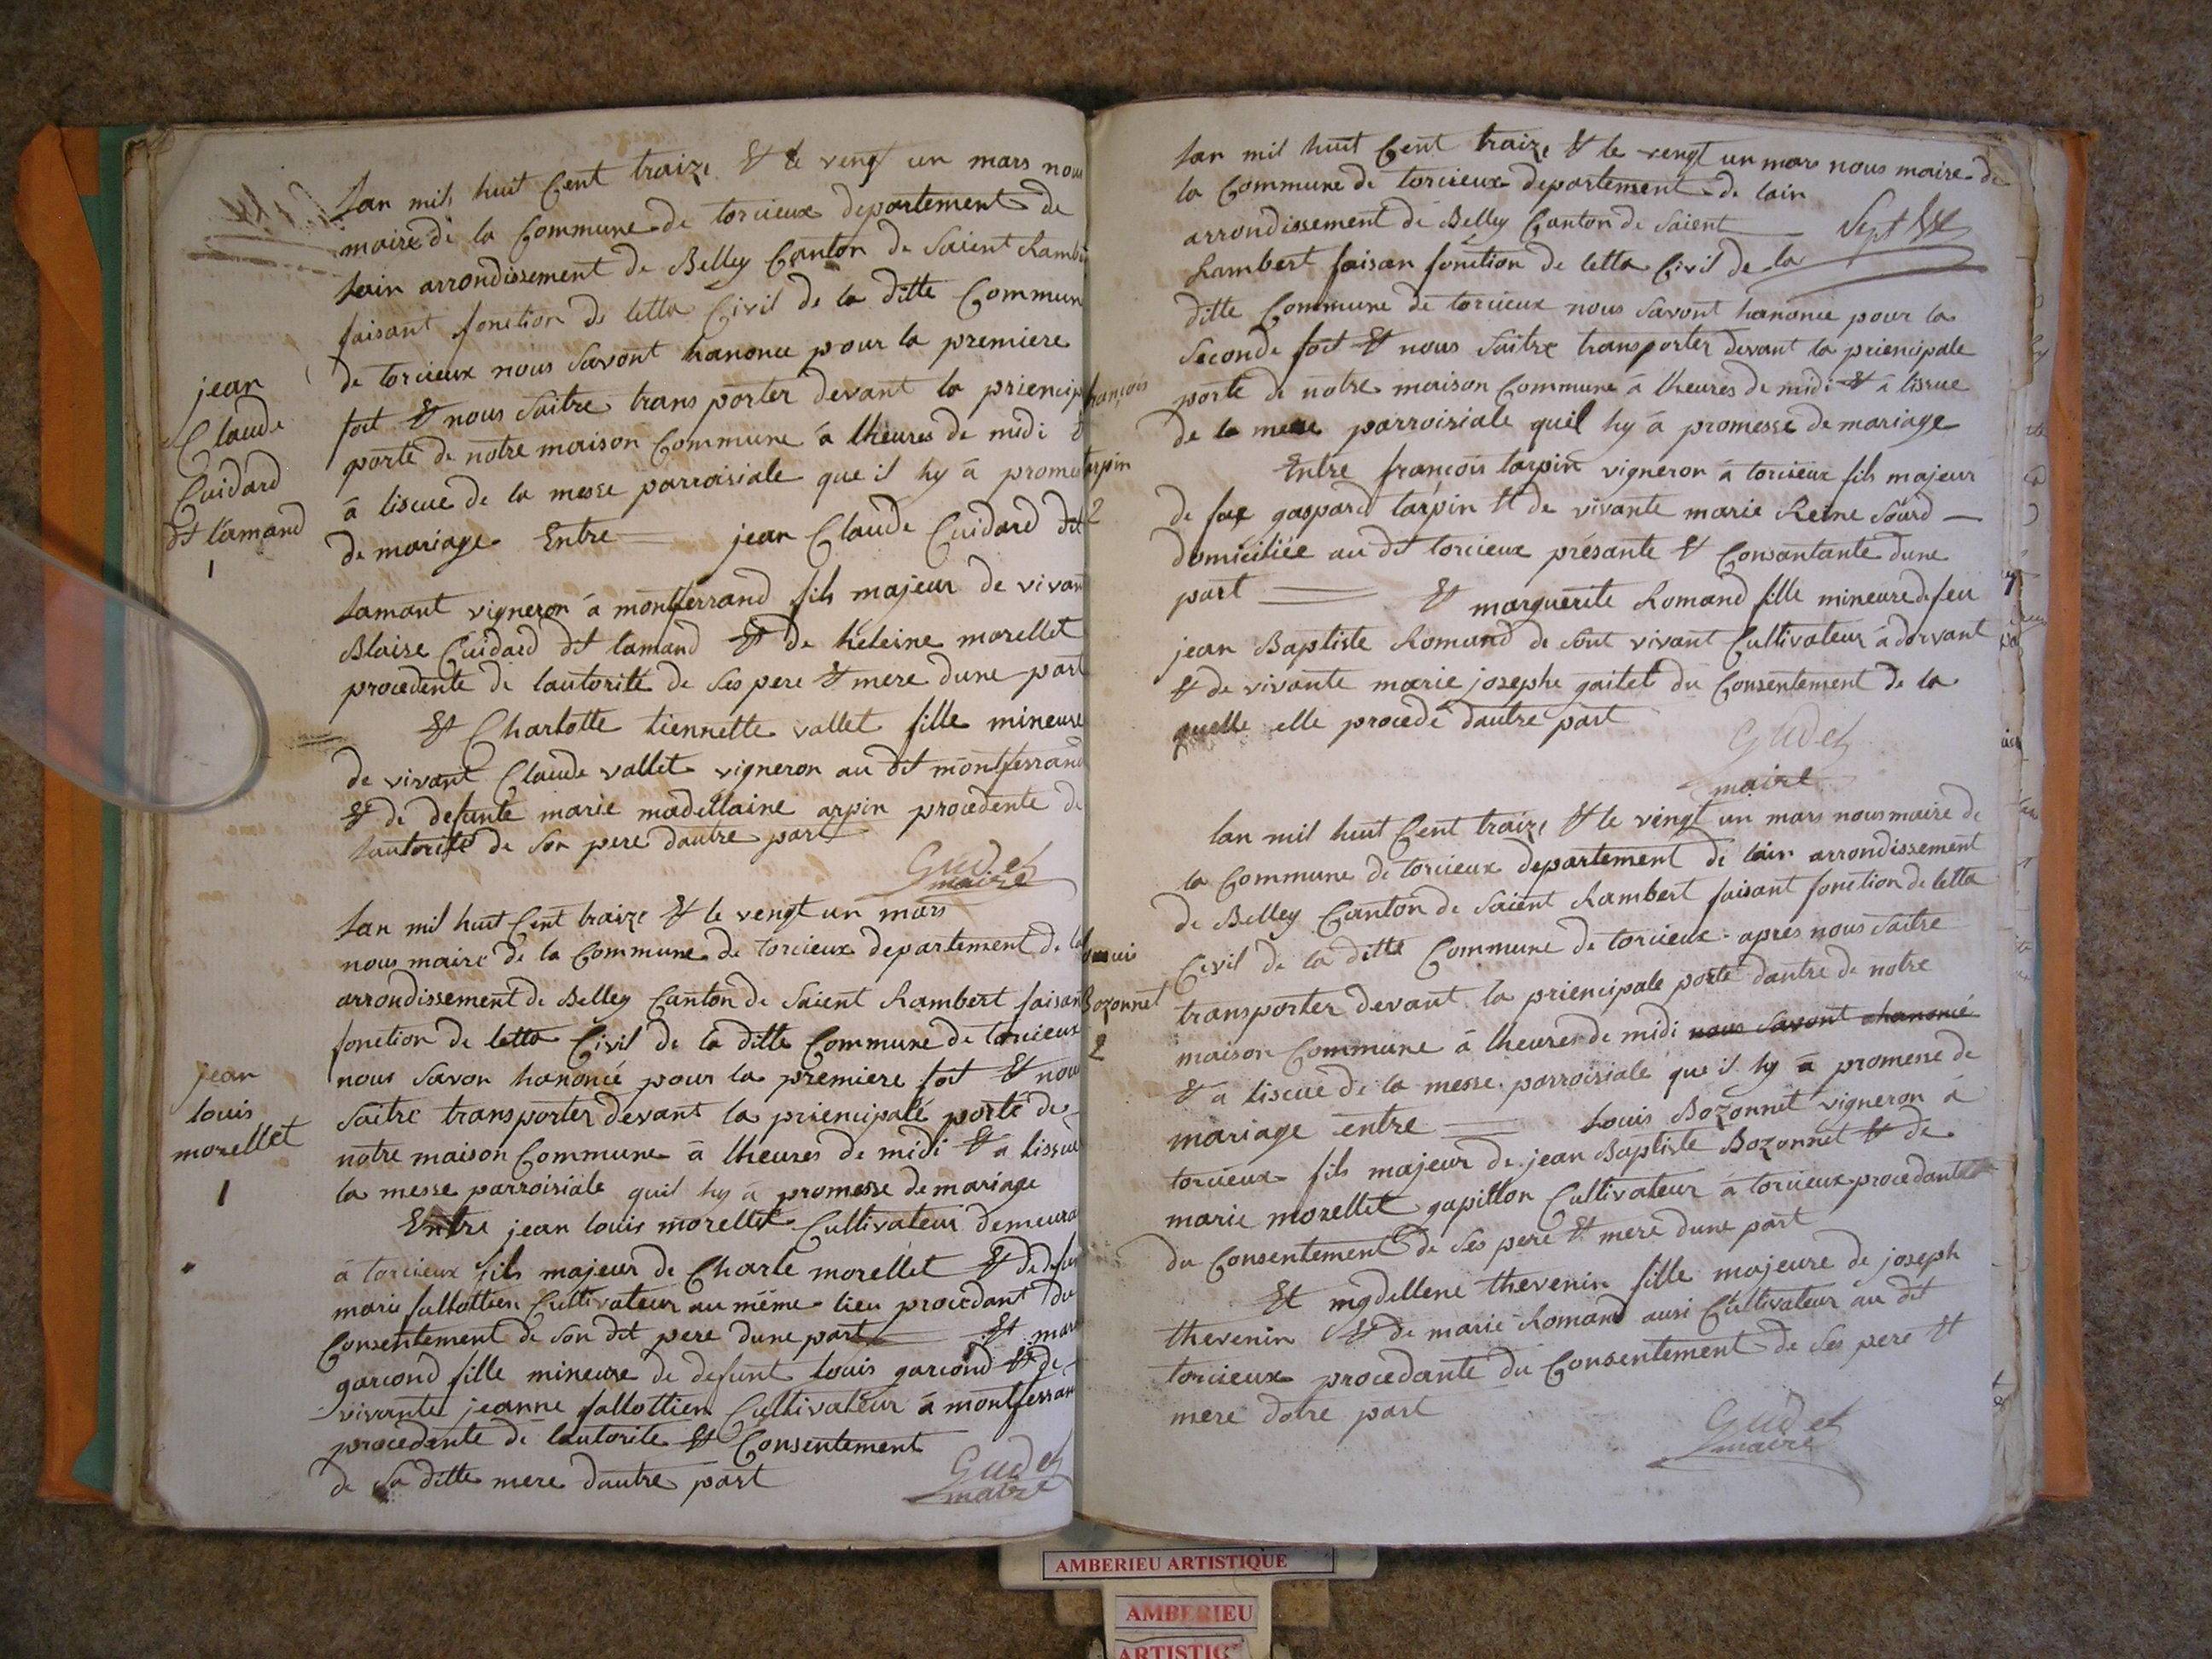 lan mil huit Cent traize et le vengt un mars nou
maire de la Commune de torcieux departement de
lain arrondissement de Belley Canton de Saient Rambe
faisant fonction de letta Civil de la ditte Commun
de torcieux nous Savont hanonce pour la premiere
foit et nous Saitre trans porter devant la priencip
porte de notre maison Commune à lheures de midi
à liscue de la messe parroisiale que il hy à promes
de mariage Entre jean Claude Cuidard dit
lamant vigneron à montferrand fils majeur de vivan
Blaise Cuidard dit lamand et de heleine morellet
procedente de lautorité de Ses pere et mere dune part
et Charlotte tiennette vallet fille mineure
de vivant Claude vallet vigneron au dit montferrand
et de defunte marie madellaine arpin procedente de
lautorité de Son pere dautre part
Gudet
maire
jean
Claude
Cuidard
dit lamand
1
lan mil huit Cent traize et le vengt un mars
nous maire de la Commune de torcieux departement de la
arrondissement de Belley Canton de Saient Rambert faisan
fonction de letta Civil de la ditte Commune de torcieux
nous Savon hanoncé pour la premiere foit et nous
Saitre transporter devant la priencipale porte de
notre maison Commune à lheures de midi et a lissue
la messe parroisiale quil hy à promesse de mariage
Entre jean louis morellet Cultivateur demeura
à torcieux fils majeur de Charle morellet et de defun
marie fallottien Cultivateur au même lieu procedant du
Consentement de Son dit pere dune part et mar
garcond fille mineure de defunt louis garcond et de
vivante jeanne fallottien Cultivateur à montferran
procedente de lautorite et Consentement
de Sa ditte mere dautre part
Gudet
maire
jean
louis
morellet
1
lan mil huit Cent traize et le vengt un mars nous maire de
la Commune de torcieux departement de lain
arrondissement de Belley Canton de Saient
Sept
Rambert faisan fonction de letta Civil de la
ditte Commune de torcieux nous Savont hanoncé pour la
Seconde foit et nous Saitre transporter devant la priencipale
porte de notre maison Commune à lheures de midi et à lissue
de la messe parroisiale quil hy à promesse de mariage
Entre françois tarpin vigneron à torcieux fils majeur
de feux gaspard tarpin et de vivante marie Reine Sourd
domiciliée au dit torcieux présante et Consantante dune
part et marguerite Romand fille mineure de feu
jean Baptiste Romand de Sont vivant Cultivateur à dorvant
et de vivante marie josephe gaitet du Consentement de la
quelle elle procede dautre part
Gudet
maire
françois
tarpin
2
lan mil huit Cent traize et le vingt un mars nous maire de
la Commune de torcieux departement de lain arrondissement
de Belley Canton de Saient Rambert faisant fonction de letta
Civil de la ditte Commune de torcieux apres nous Saitre
transporter devant la priencipale porte dantre de notre
maison Commune à lheures de midi nous Savont hanoncé
et à liscue de la messe parroisiale que il hy à promesse de
mariage entre Louis Bozonnet vigneron à
torcieux fils majeur de jean Baptiste Bozonnet et de
marie morellet gapillon Cultivateur à torcieux procedante
du Consentement de Ses pere et mere dune part
Et mgdellene thevenin fille majeure de joseph
thevenin et de marie Romand ausi Cultivateur au dit
torcieux procedante du Consentement de Ses pere et
mere dotre part
Gudet
maire
louis
Bozonnet
2
AMBERIEU ARTISTIQUE
AMBERIEU